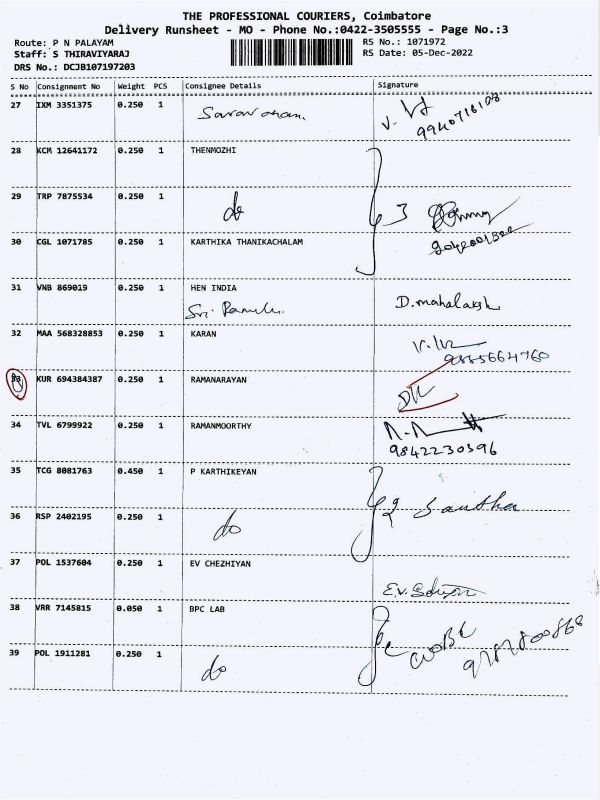 THE PROFESSIONAL COURIERS, Coimbatore
Delivery Runsheet - MO - Phone No.:0422-3505555 - Page No.:3
Route: P N PALAYAM RS No.: 1071972
Staff: S THIRAVIYARAJ RS Date: 05-Dec-2022
DRS No.: DCJB107197203
S No Consignment No Weight PCS Consignee Details Signature
27 IXM 3351375 0.250 1
9940716108
28 KCM 12641172 0.250 1 THENMOZHI
29 TRP 7875534 0.250 1 do 3
30 CGL 1071785 0.250 1 KARTHIKA THANIKACHALAM
31 VNB 869019 0.250 1 HEN INDIA
D.mahalaksh
32 MAA 568328853 0.250 1 KARAN
9885664760
33 KUR 694384387 0.250 1 RAMANARAYAN
34 TVL 6799922 0.250 1 RAMANMOORTHY
9842230596
35 TCG 8081763 0.450 1 P KARTHIKEYAN
2 Santha
36 RSP 2402195 0.250 1 do
37 POL 1537604 0.250 1 EV CHEZHIYAN
38 VRR 7145815 0.050 1 BPC LAB
39 POL 1911281 0.250 1 do